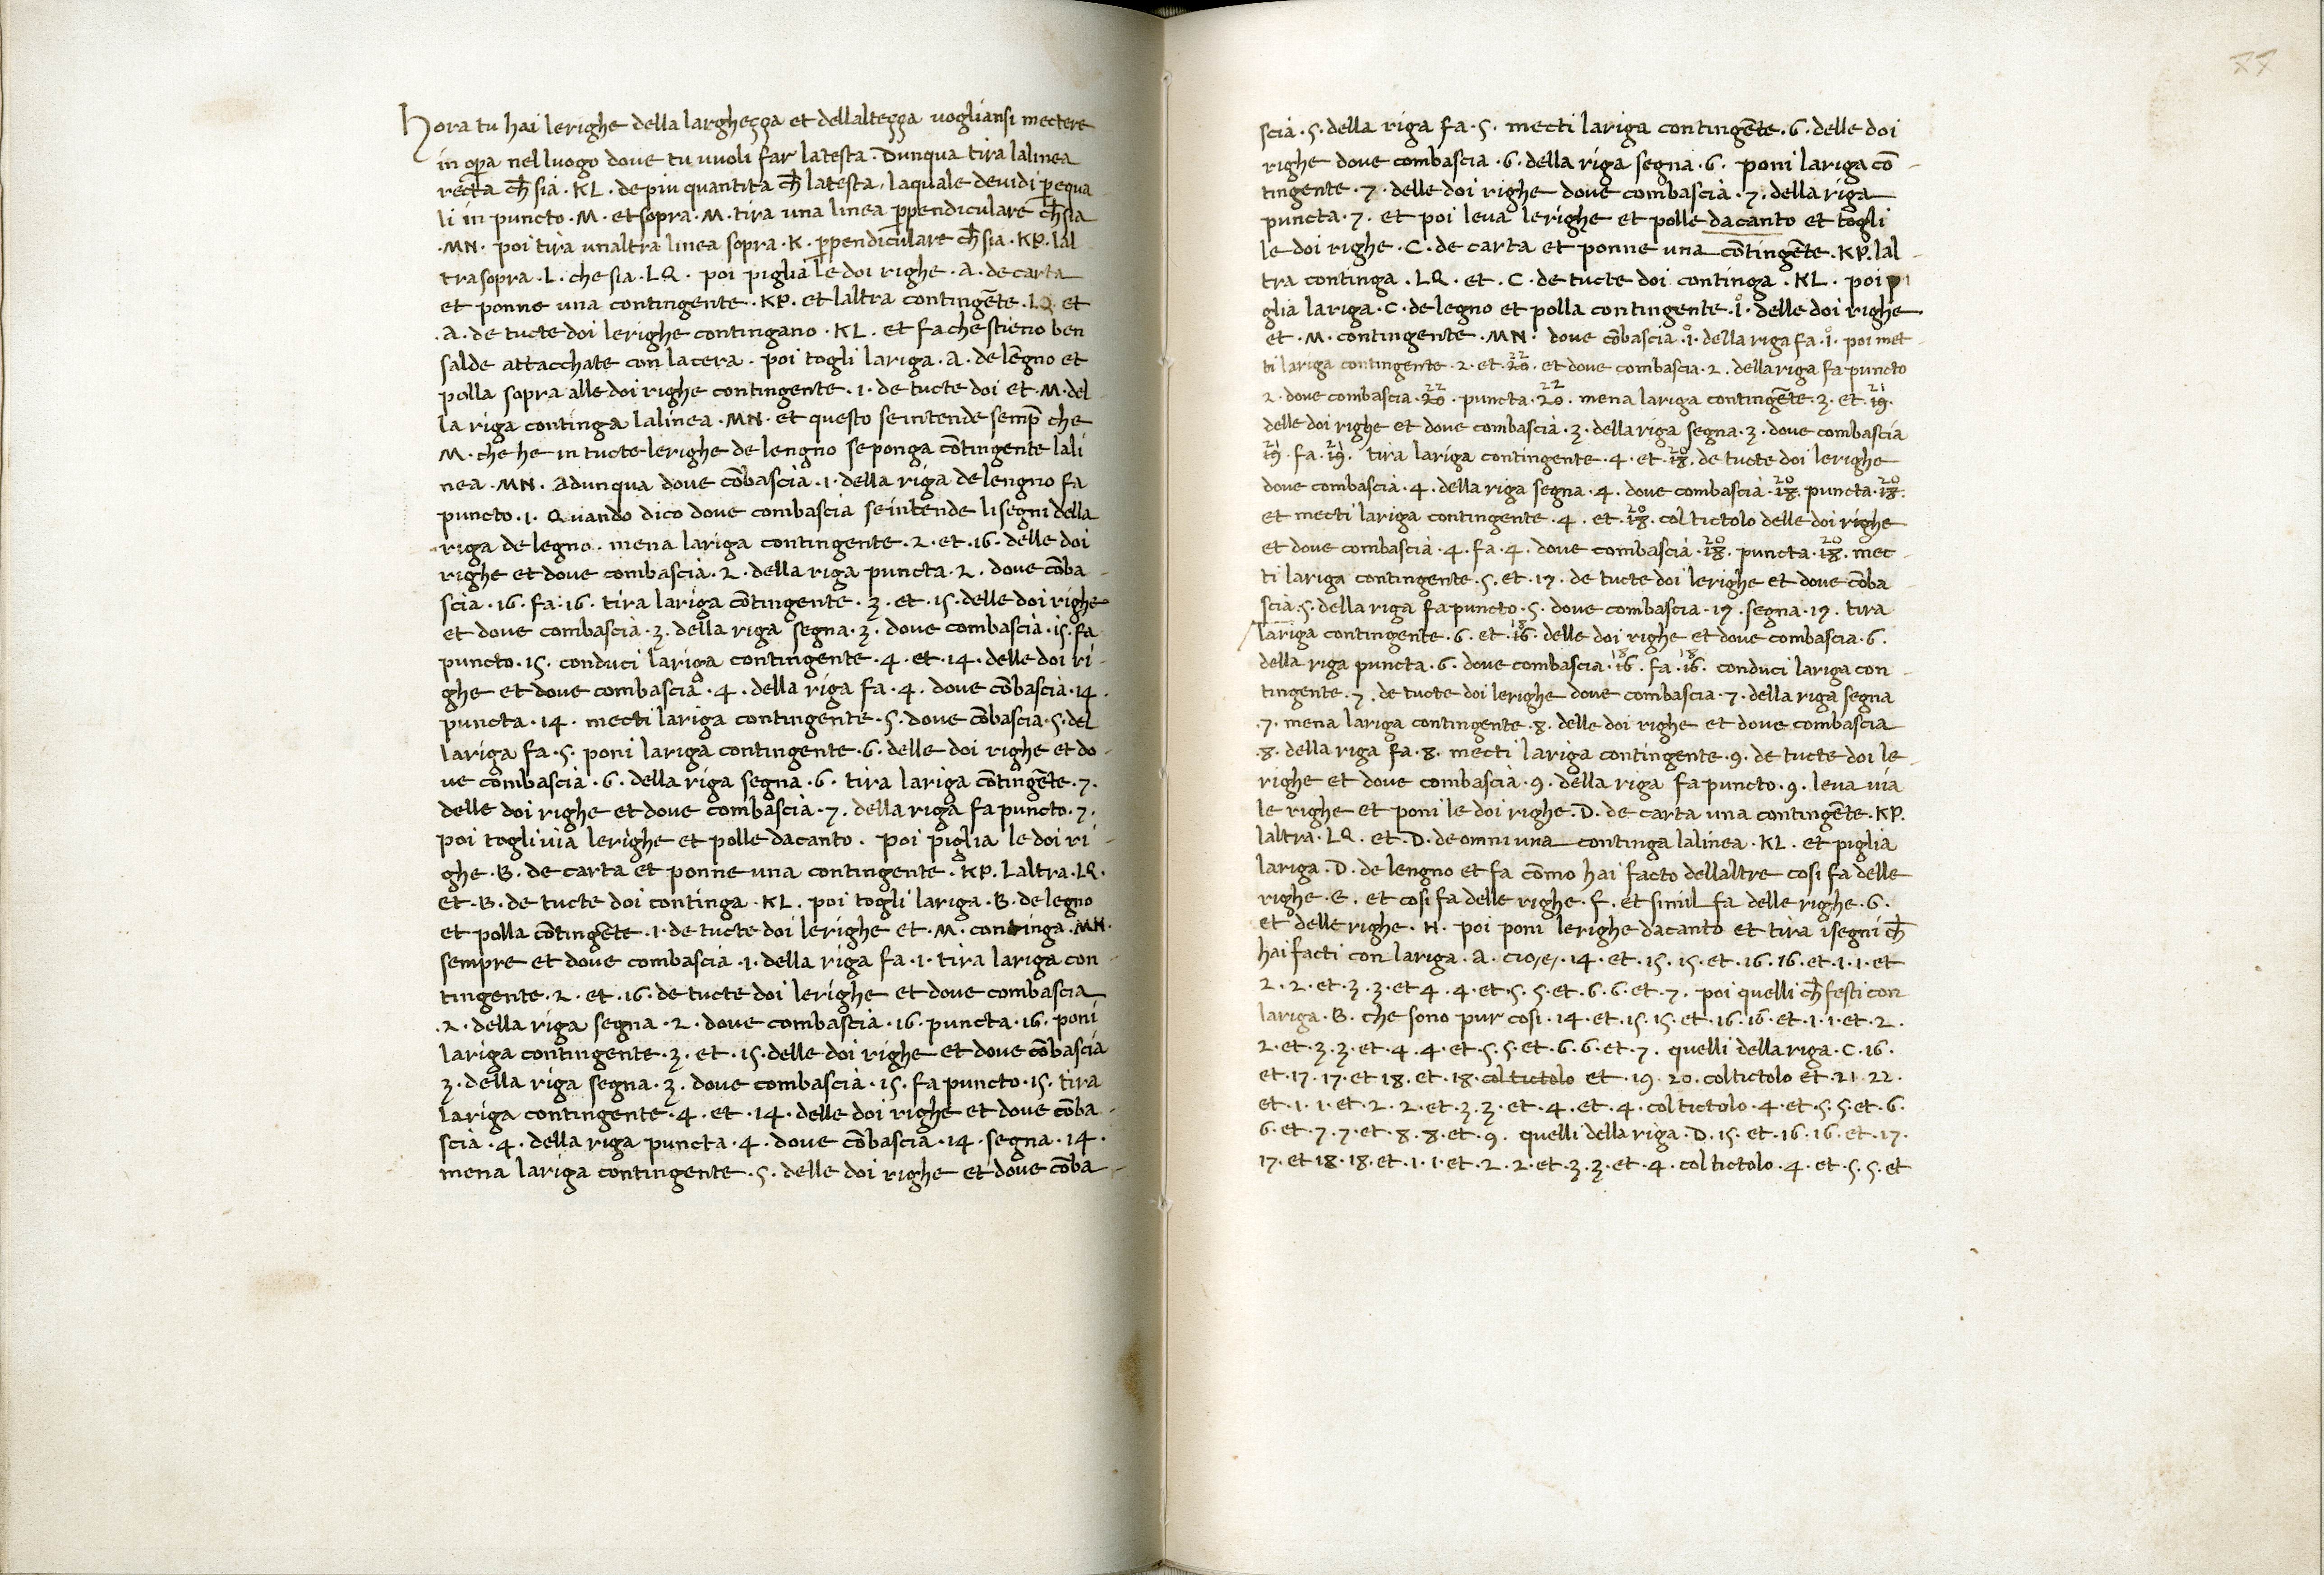 Hora tu hai lerighe della larghezza et dellaltezza vogliansi mectere
in opa nel luogo dove tu vuoli far latesta . Dunqua tira lalinea
recta ch̄ sia . KL . depiu quantita ch̄ latesta . laquale devidi p̄equa
li in puncto . M . et sopra . M . tira una linea p̄pendiculare ch̄sia
.MN. poi tira unaltra linea sopra . K . p̄pendiculare ch̄ sia . KP. lal
tra sopra . L . che sia . LQ . poi piglia le doi righe . A . de carta
et ponne una contingente . KP. et laltra contingēte . LQ . et
. A . de tucte doi lerighe contingano . KL . et fa che stieno ben
salde attacchate con lacera . poi togli lariga . A . de lēgno et
polla sopra alle doi righe contingente . 1 . de tucte doi et . M . del
la riga continga lalinea . MN . et questo seintende semp̄ che
M . che he in tucte lerighe de lengno se ponga cōtingente lali
nea . MN . Adunqua dove cōbascia . 1 . della riga de lengno fa
puncto . 1 . Quando dico dove combascia seintende li segni della
riga de legno . mena lariga contingente . 2 . et . 16 . delle doi
righe et dove combascia . 2 . della riga puncta . 2 . dove cōba -
scia . 16 . fa . 16 . tira lariga cōtingente . 3 . et . 15 . delle doi righe
et dove combascia . 3 . della riga segna . 3 . dove combascia . 15 . fa
puncto . 15 . conduci lariga contingente . 4 . et . 14 . delle doi ri -
ghe et dove combascia . 4 . della riga fa . 4 . dove cōbascia . 14 .
puncta . 14 . mecti lariga contingente . 5 . dove cōbascia . 5 . del
lariga fa . 5 . poni lariga contingente . 6 . delle doi righe et do -
ve combascia . 6 . della riga segna . 6 . tira lariga cōtingēte . 7 .
delle doi righe et dove combascia . 7 . della riga fa puncto . 7 .
poi togli via lerighe et polle dacanto . poi piglia le doi ri -
ghe . B . de carta et ponne una contingente . KP. Laltra . LQ .
et . B . de tucte doi continga . KL . poi togli lariga . B . de legno
et polla cōtingēte . 1 . de tucte doi lerighe et . M . continga . MN .
sempre et dove combascia . 1 . della riga fa . 1 . tira lariga con -
tingente . 2 . et . 16 . de tucte doi lerighe et dove combascia
. 2 . della riga segna . 2 . dove combascia . 16 . puncta . 16 . poni
lariga contingente . 3 . et . 15 . delle doi righe et dove cōbascia
3 . della riga segna . 3 . dove combascia . 15 . fa puncto . 15 . tira
lariga contingente . 4 . et . 14 . delle doi righe et dove cōba -
scia . 4 . della riga puncta . 4 . dove cōbascia . 14 . segna . 14 .
mena lariga contingente . 5 . delle doi righe et dove cōba -
77
scia . 5 . della riga fa . 5 . mecti lariga contingēte . 6 . delle doi
righe dove combascia . 6 . della riga segna . 6 . poni lariga cō -
tingente . 7 . delle doi righe dove combascia . 7 . della riga
puncta . 7 . et poi leva lerighe et polle dacanto et togli
le doi righe . C . de carta et ponne una cōtingēte . KP. lal
tra continga . LQ . et . C . de tucte doi continga . KL . poi pi
glia lariga . C . de legno et polla contingente . 1 . delle doi righe
et . M . contingente . MN . dove cōbascia . 1 . della riga fa . 1 . poi met -
ti lariga contingente . 2 . et . 22 20 . et dove combascia . 2 . della riga fa puncto
2 . dove combascia . 22 20 . puncta . 22 20 . mena lariga contingēte . 3 . et . 21 19 .
delle doi righe et dove combascia . 3 . della riga segna . 3 . dove combascia
21 19 . fa . 21 19 . tira lariga contingente . 4 . et . 20 18 . de tucte doi lerighe
dove combascia . 4 . della riga segna . 4 . dove combascia . 20 18 . puncta . 20 18 .
et mecti lariga contingente . 4 . et . 20 18 . col tictolo delle doi righe
et dove combascia . 4 . fa . 4 . dove combascia . 20 18 . puncta . 20 18 . mec -
ti lariga contingente . 5 . et . 19 . de tucte doi lerighe et dove cōba
scia . 5 . della riga fa puncto . 5 . dove combascia . 19 . segna . 19 . tira
lariga contingente . 6 . et . 18 16 . delle doi righe et dove combascia . 6 .
della riga puncta . 6 . dove combascia . 18 16 . fa . 18 16 . conduci lariga con -
tingente . 7 . de tucte doi lerighe dove combascia . 7 . della riga segna
. 7 . mena lariga contingente . 8 . delle doi righe et dove combascia
. 8 . della riga fa . 8 . mecti lariga contingente . 9 . de tucte doi le -
righe et dove combascia . 9 . della riga fa puncto . 9 . leva via
le righe et poni le doi righe . D . de carta una contingēte . KP.
laltra . LQ . et . D . de omni una continga lalinea . KL . et piglia
lariga . D . de lengno et fa cōmo hai facto dellaltre cosi fa delle
righe . E . et cosi fa delle righe . F . et simil fa delle righe . G .
et delle righe . H . poi poni lerighe dacanto et tira isegni ch̄
hai facti con lariga . A . cio,e, . 14 . et . 15 . 15 . et . 16 . 16 . et . 1 . 1 . et
2 . 2 . et . 3 . 3 . et 4 . 4 . et . 5 . 5 . et . 6 . 6 . et . 7 . poi quelli ch̄ festi con
lariga . B . che sono pur cosi . 14 . et . 15 . 15 . et . 16 . 16 . et . 1 . 1 . et . 2 .
2 . et . 3 . 3 . et . 4 . 4 . et . 5 . 5 . et . 6 . 6 . et . 7 . quelli della riga . C . 16 .
et . 17 . 17 . et 18 . et . 18 . col tictolo et . 19 . 20 . col tictolo et . 21 . 22 .
et . 1 . 1 . et . 2 . 2 . et . 3 . 3 . et . 4 . et . 4 . col tictolo . 4 . et . 5 . 5 . et . 6 .
6 . et . 7 . 7 . et . 8 . 8 . et . 9 . quelli della riga . D . 15 . et . 16 . 16 . et . 17 .
17 . et 18 . 18 . et . 1 . 1 . et . 2 . 2 . et . 3 . 3 . et . 4 . col tictolo . 4 . et . 5 . 5 . et